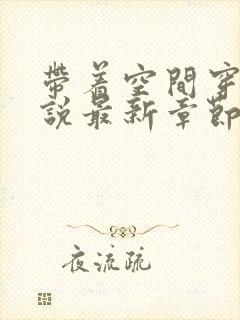 帶着空間穿
說最新章節
夜流疏